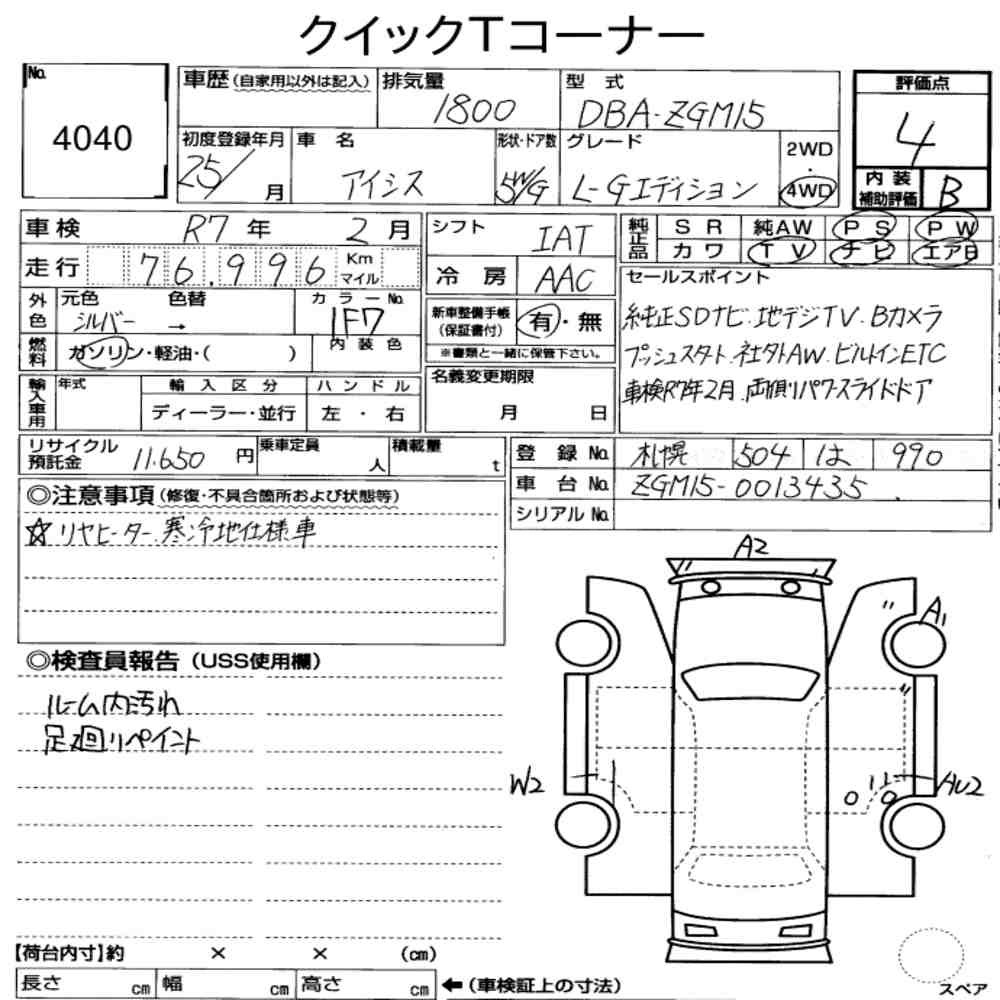 クイックTコーナー
No. 4040
車歴 (自家用以外は記入) 排気量 1800 型式 DBA-ZGM15
評価点 4
初度登録年月 25/ 月 車名 アイシス 形状・ドア数 5W/G グレード L-Gエディション 2WD 4WD
内装補助評価 B
車検 R7年 2月
シフト IAT
純正品 SR 純AW PS PW
カワ TV ナビ エアB
走行 76,996 Km マイル
冷房 AAC
セールスポイント
純正SDナビ.地デジTV.Bカメラ
プッシュスタート.社外AW.ビルトインETC
車検R7年2月.両側リパワースライドドア
外色 元色 シルバー 色替 → カラーNo. 1F7
新車整備手帳 (保証書付) 有・無
※書類と一緒に保管下さい。
燃料 ガソリン・軽油・( ) 内装色
輸入車用 年式 輸入区分 ハンドル
ディーラー・並行 左・右
名義変更期限
月 日
リサイクル預託金 11.650 円 乗車定員 人 積載量 t
登録No. 札幌 504 は 990
車台No. ZGM15-0013435
シリアルNo.
◎注意事項 (修復・不具合箇所および状態等)
☆リヤヒーター.寒冷地仕様車
◎検査員報告 (USS使用欄)
ルーム内汚れ
足廻リペイント
A2
A1
W2
AU2
【荷台内寸】約 × × (cm)
長さ cm 幅 cm 高さ cm ←(車検証上の寸法)
スペア